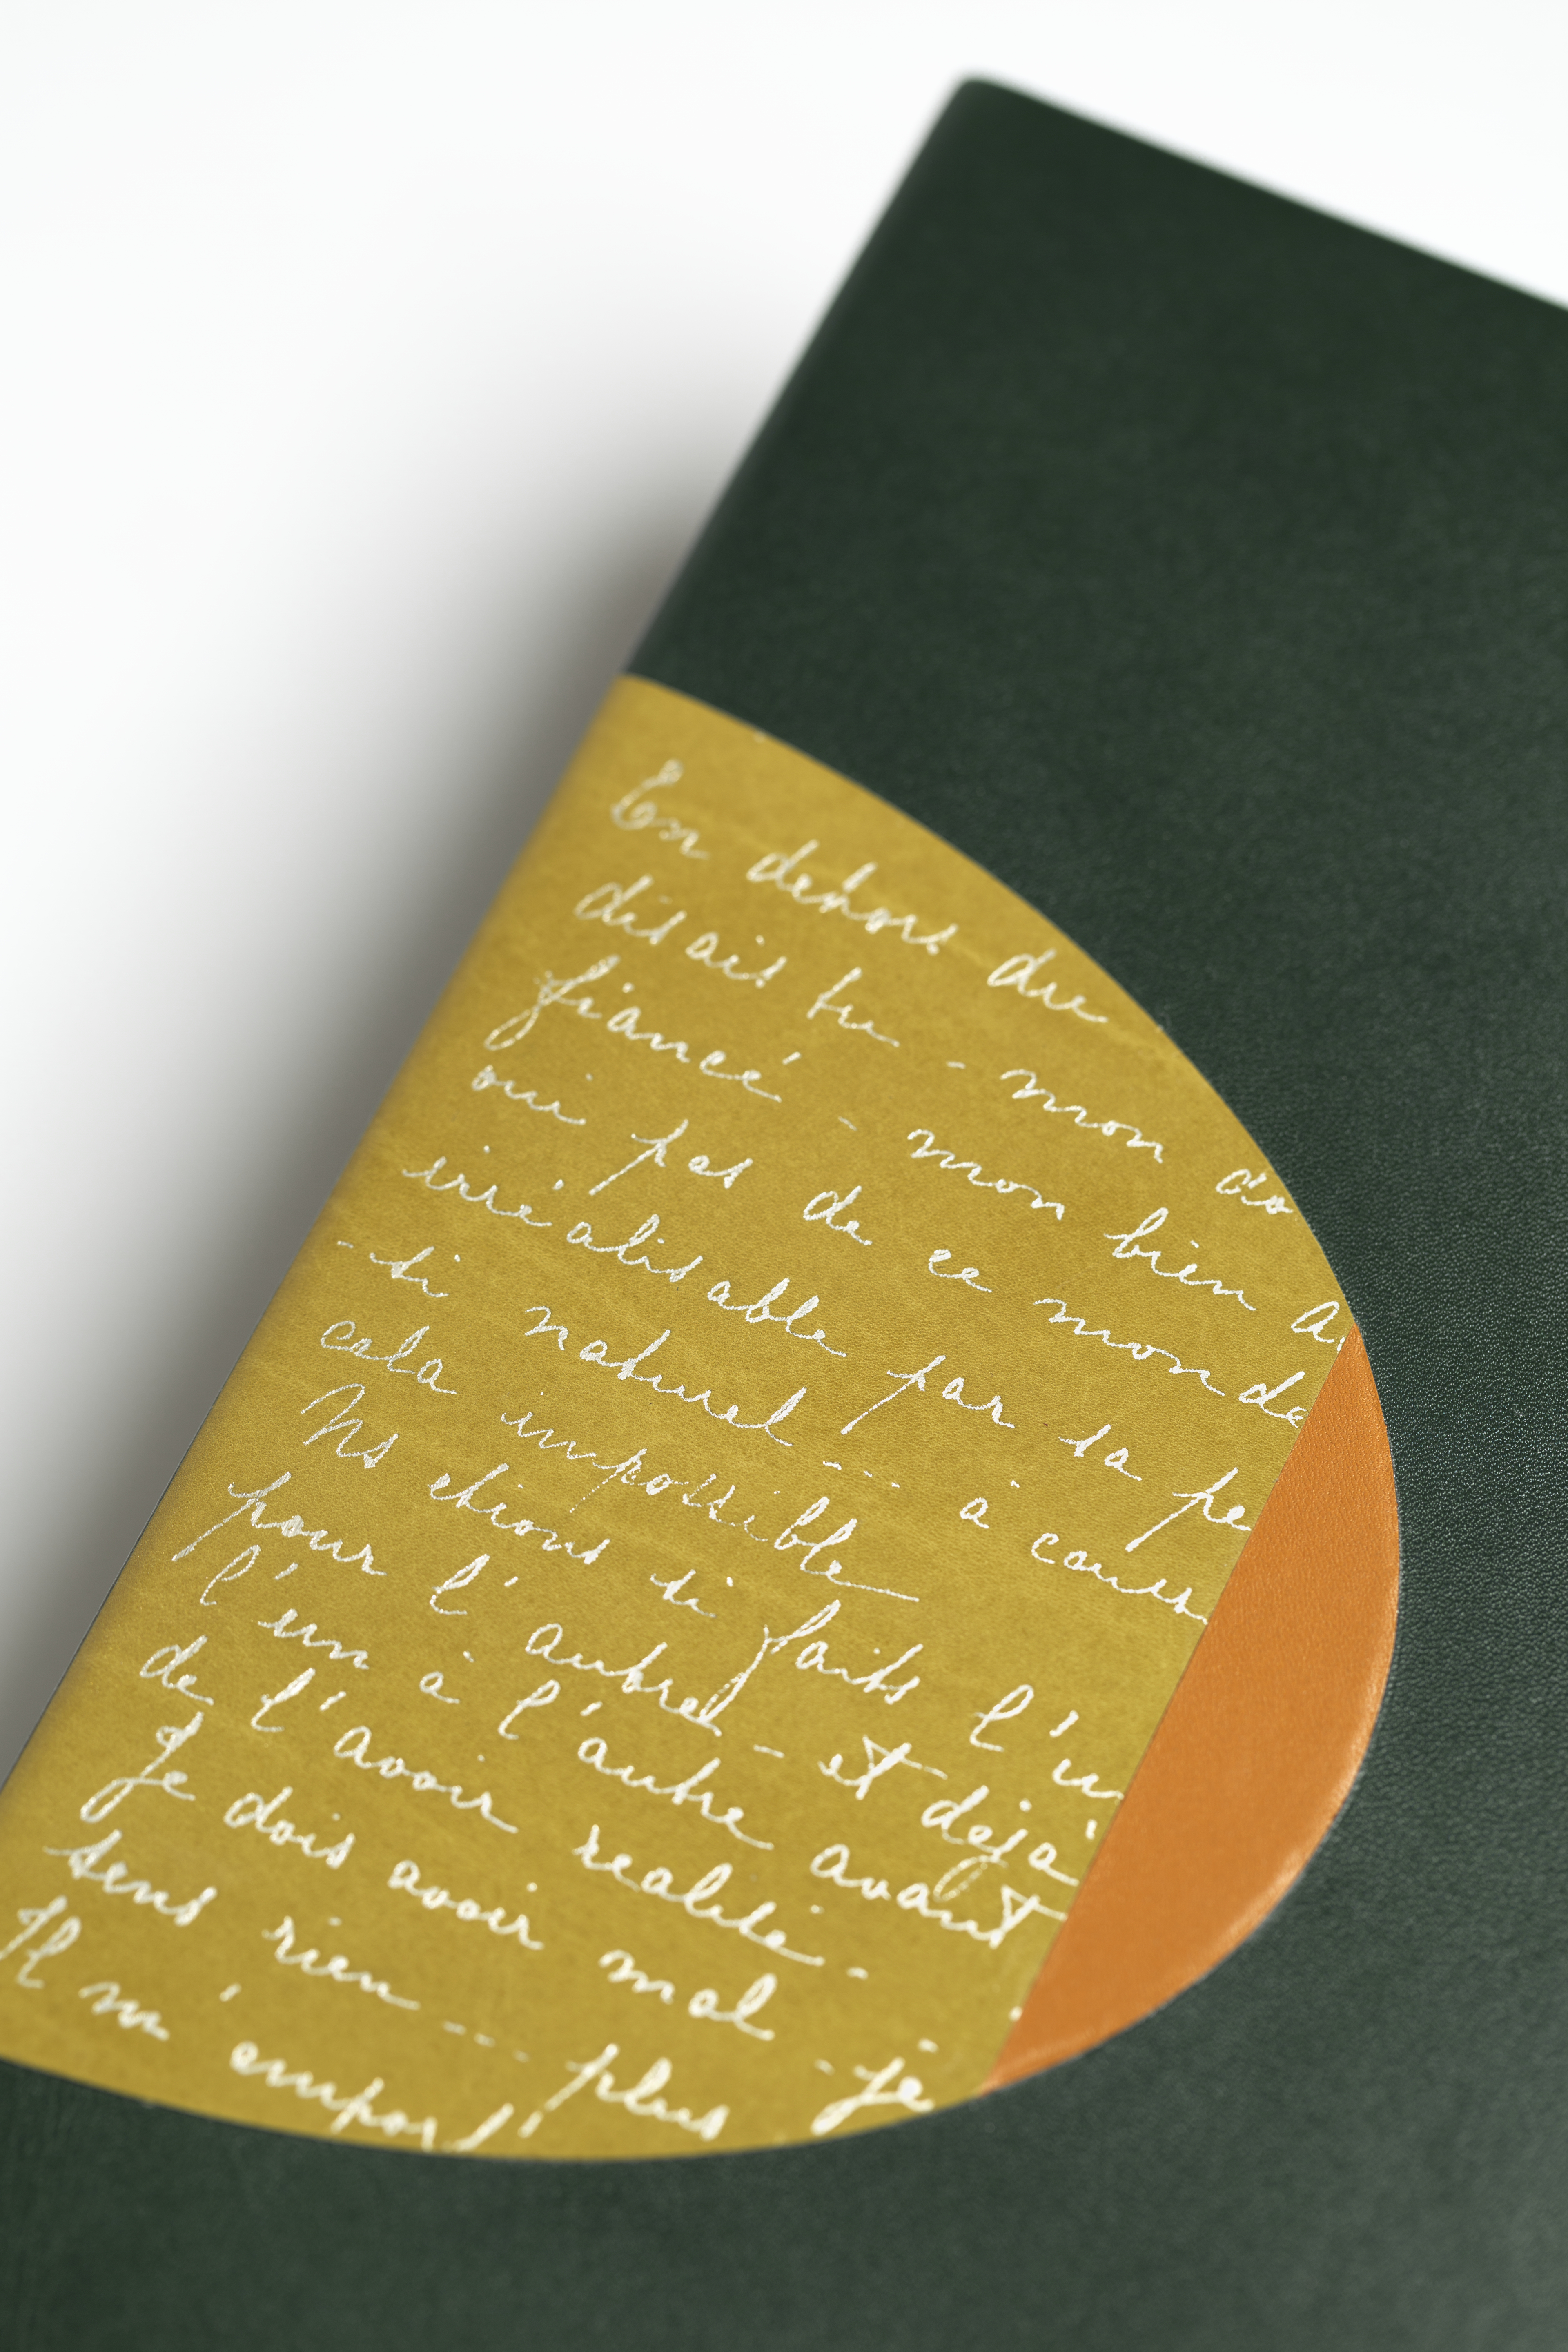 En dehors du
disais tu - mon do
fiancé - mon bien a
oui pas de ce monde
irréalisable par sa pe
- si naturel --- à caus
cela impossible
Ns etions si faits l'un
pour l'autre - et déjà
l'un à l'autre avant
de l'avoir realisé -
Je dois avoir mal - je
sens rien --- plus
Il m'emport